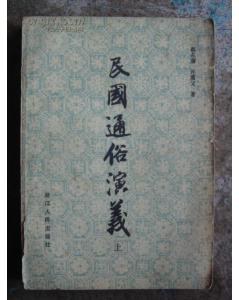 蔡东藩 许廑父 著
民國通俗演義
上
浙江人民出版社